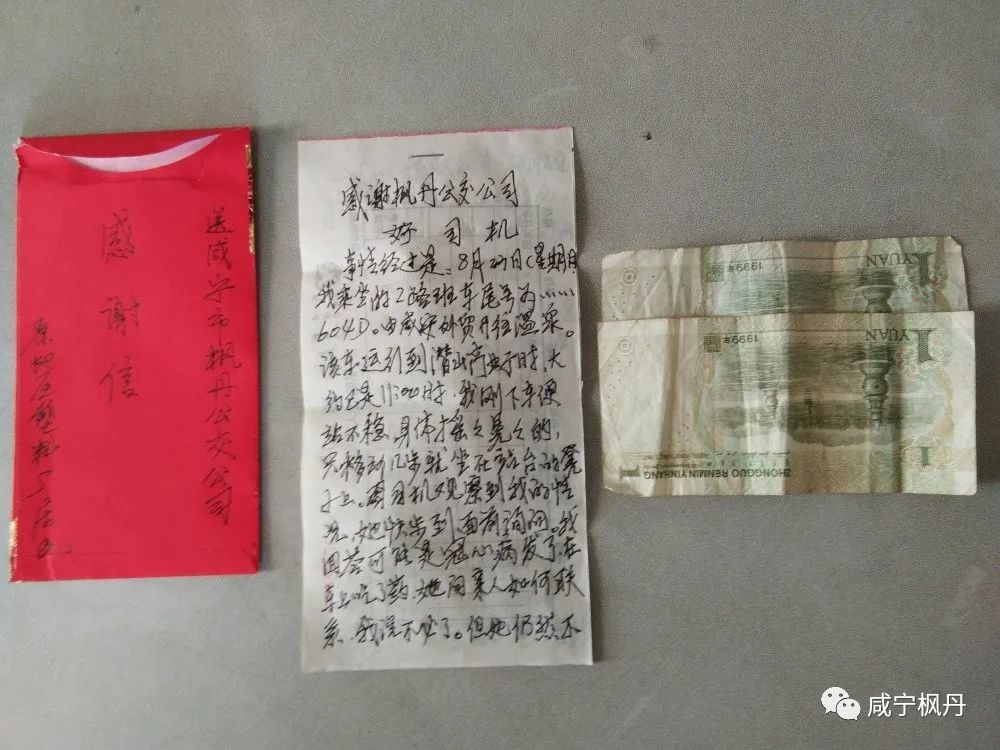 送咸宁市枫丹公交公司
感谢信
感谢枫丹公交公司
好司机
事情经过是、8月27日(星期日
我乘坐的2路班车尾号为……
604D。由咸宁外贸开往温泉。
该车运行到潜山商业街时,大
约已是11:00时,我刚下车便
站不稳,身体摇摇晃晃的,
只移到几步就坐在站台的凳
子上。司机观察到我的情
况,她快步到面前询问。我
回答可能是冠心病发了,在
车上吃了药,她问家人如何联
系,我说不必了。但她仍然不
1
YUAN
1999年
1
YUAN
1999年
1
ZHONGGUO RENMIN YINHANG
咸宁枫丹